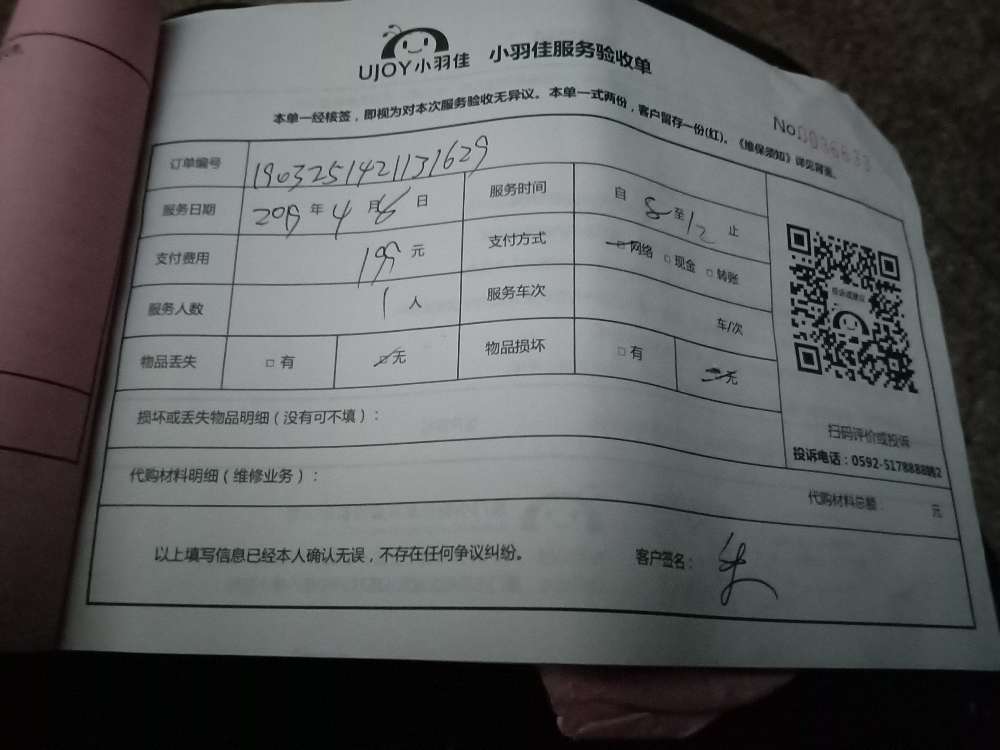 UJOY小羽佳 小羽佳服务验收单
本单一经核签，即视为对本次服务验收无异议。本单一式两份，客户留存一份(红)。《维保须知》详见背面。
No.0036633
订单编号 1903251421131629
服务日期 2019 年 4 月 6 日 服务时间 自 8 至 12 止
支付费用 199 元 支付方式 □ 网络 □ 现金 □ 转账
服务人数 1 人 服务车次 车/次
物品丢失 □ 有 □ 无 物品损坏 □ 有 □ 无
损坏或丢失物品明细（没有可不填）：
代购材料明细（维修业务）：
代购材料总额： 元
投诉或建议
扫码评价或投诉
投诉电话：0592-5178888转2
以上填写信息已经本人确认无误，不存在任何争议纠纷。 客户签名：